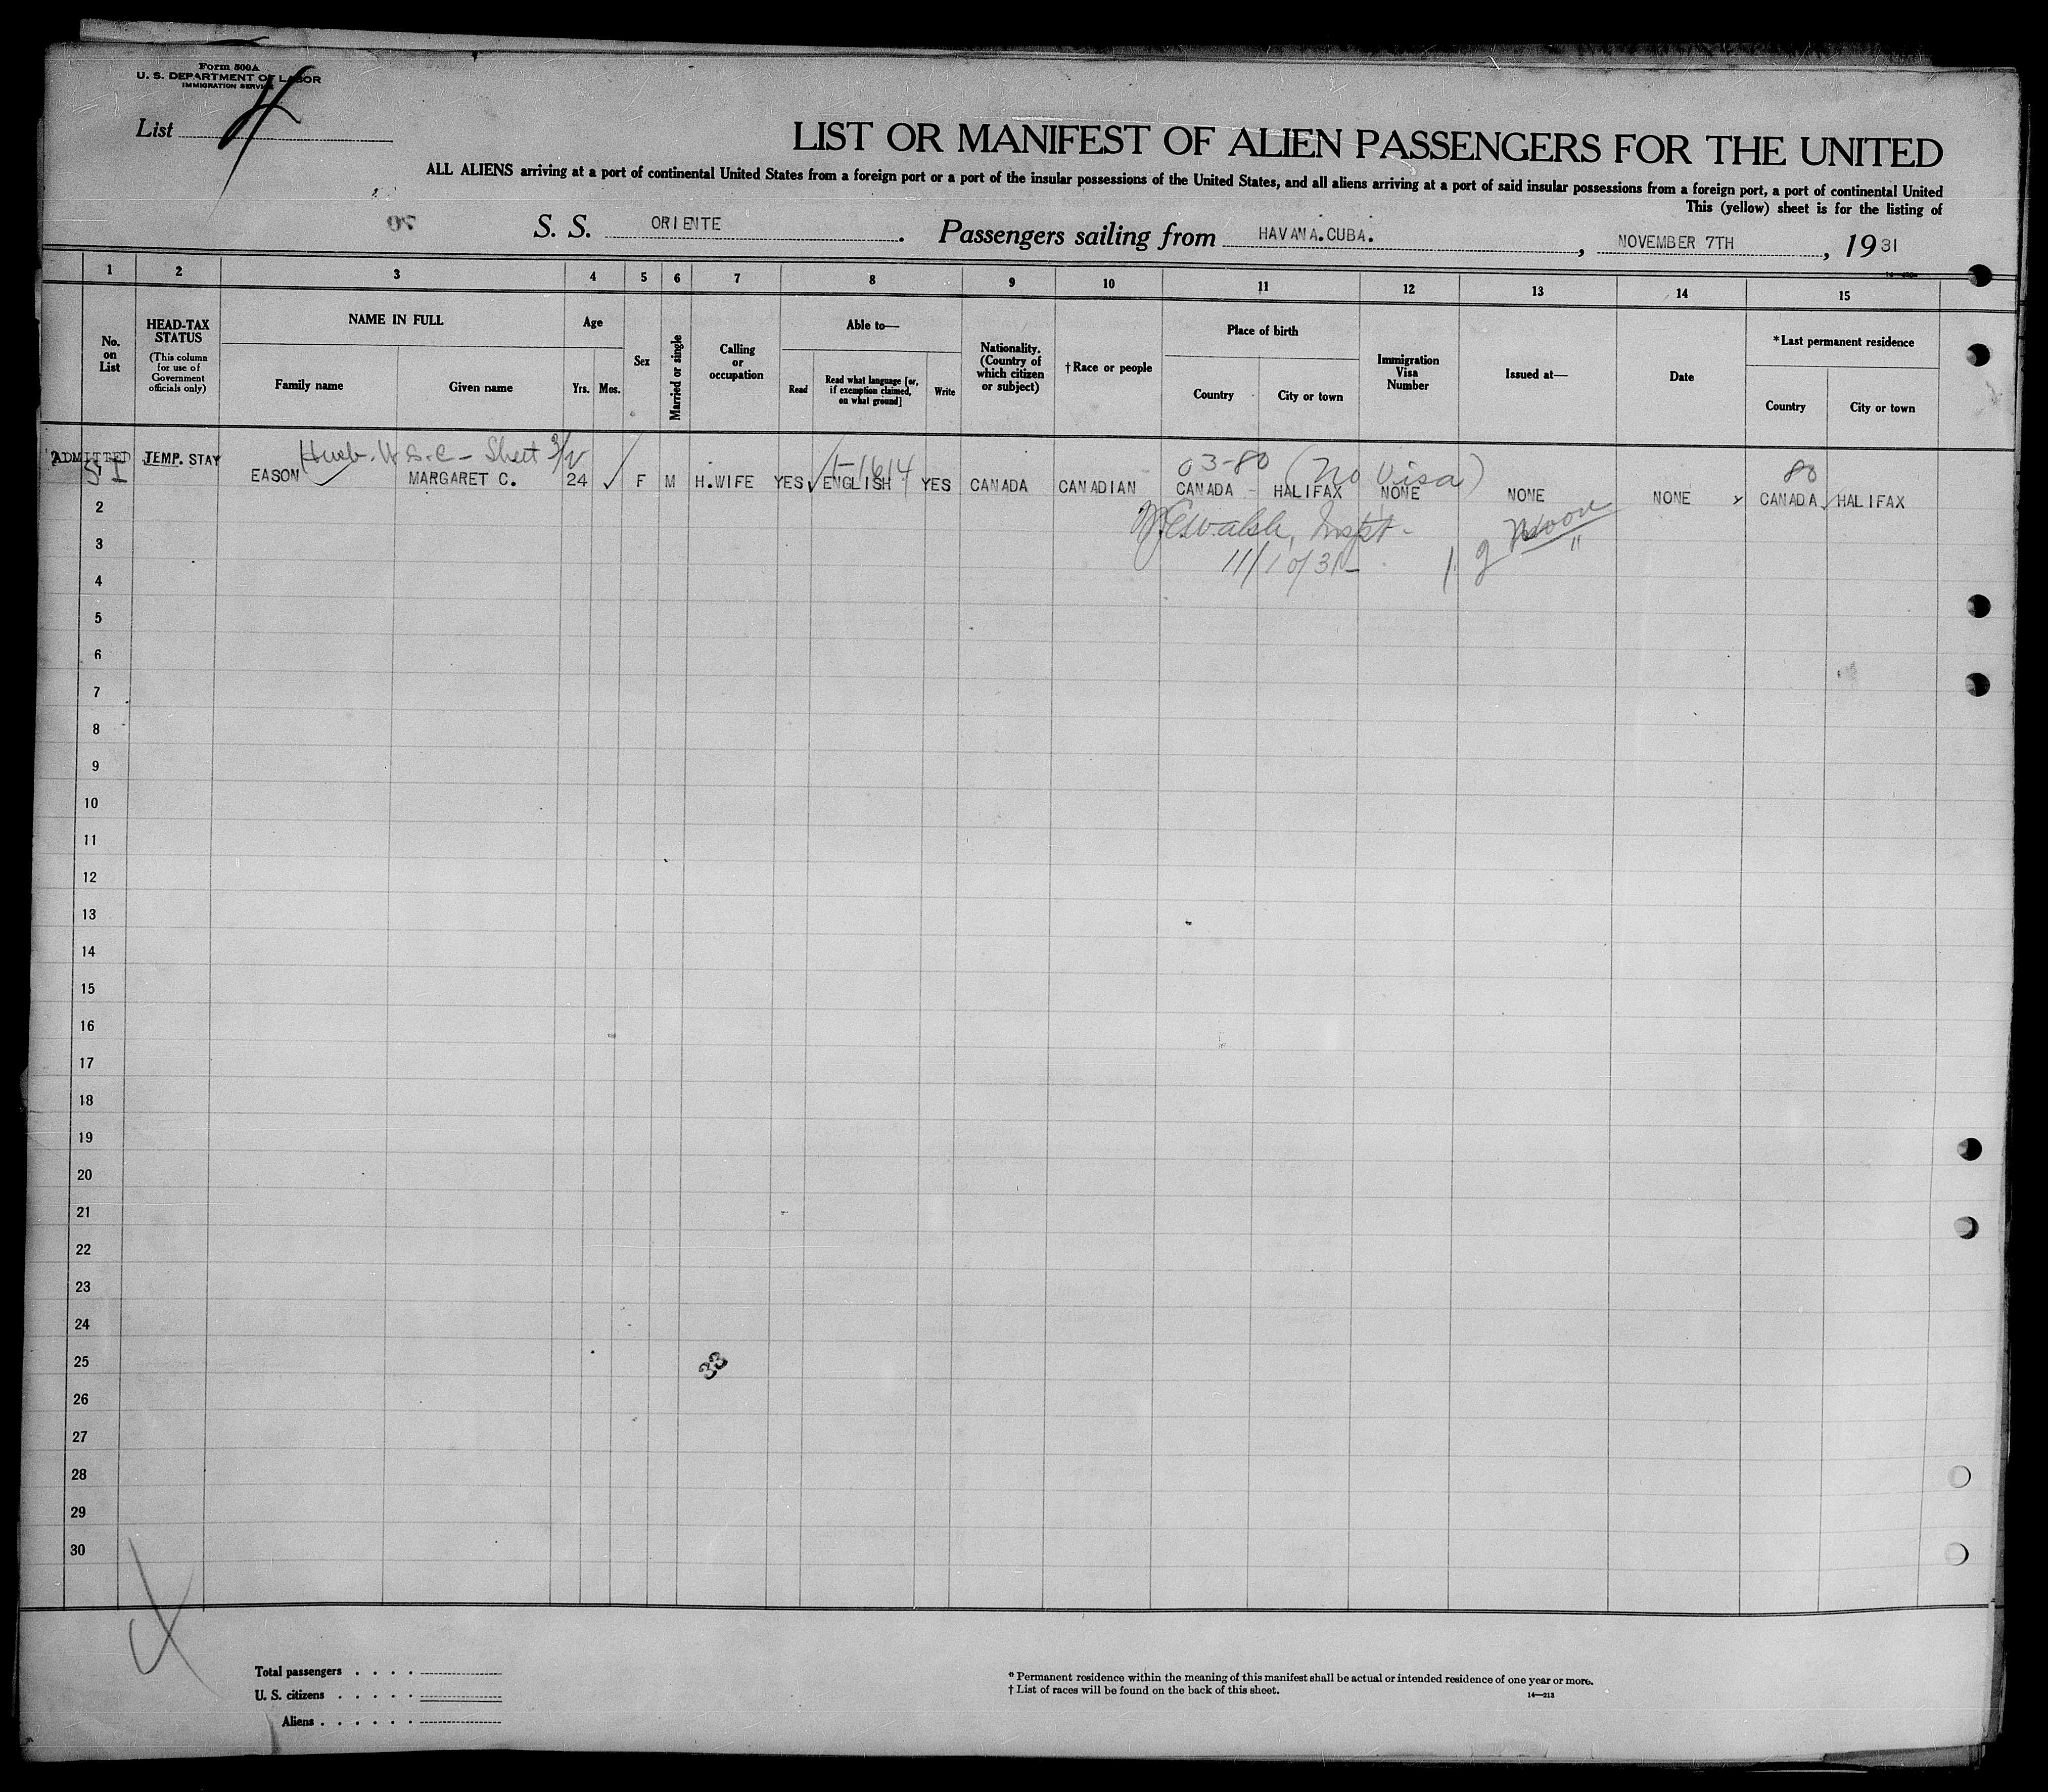 Form 500A
U. S. DEPARTMENT OF LABOR
IMMIGRATION SERVICE
List 4
LIST OR MANIFEST OF ALIEN PASSENGERS FOR THE UNITED
ALL ALIENS arriving at a port of continental United States from a foreign port or a port of the insular possessions of the United States, and all aliens arriving at a port of said insular possessions from a foreign port, a port of continental United
This (yellow) sheet is for the listing of
70
S. S. ORIENTE. Passengers sailing from HAVANA.CUBA., NOVEMBER 7TH, 1931
1 2 3 4 5 6 7 8 9 10 11 12 13 14 15
No. on List
HEAD-TAX STATUS
(This column for use of Government officials only)
NAME IN FULL
Family name Given name
Age
Yrs. Mos.
Sex
Married or single
Calling or occupation
Able to—
Read
Read what language [or, if exemption claimed, on what ground]
Write
Nationality. (Country of which citizen or subject)
†Race or people
Place of birth
Country City or town
Immigration Visa Number
Issued at—
Date
*Last permanent residence
Country City or town
Husb. U.S.C - Sheet 3/
03-80 (No Visa) 80
ADMITTED TEMP. STAY
SI EASON MARGARET C. 24 F M H.WIFE YES ENGLISH YES CANADA CANADIAN CANADA HALIFAX NONE NONE NONE CANADA HALIFAX
2
Walsh, Inspt-
3
11/10/31-
4
5
6
7
8
9
10
11
12
13
14
15
16
17
18
19
20
21
22
23
24
25
33
26
27
28
29
30
Total passengers . . . .
U. S. citizens . . . . .
Aliens . . . . . .
* Permanent residence within the meaning of this manifest shall be actual or intended residence of one year or more.
† List of races will be found on the back of this sheet.
14—213